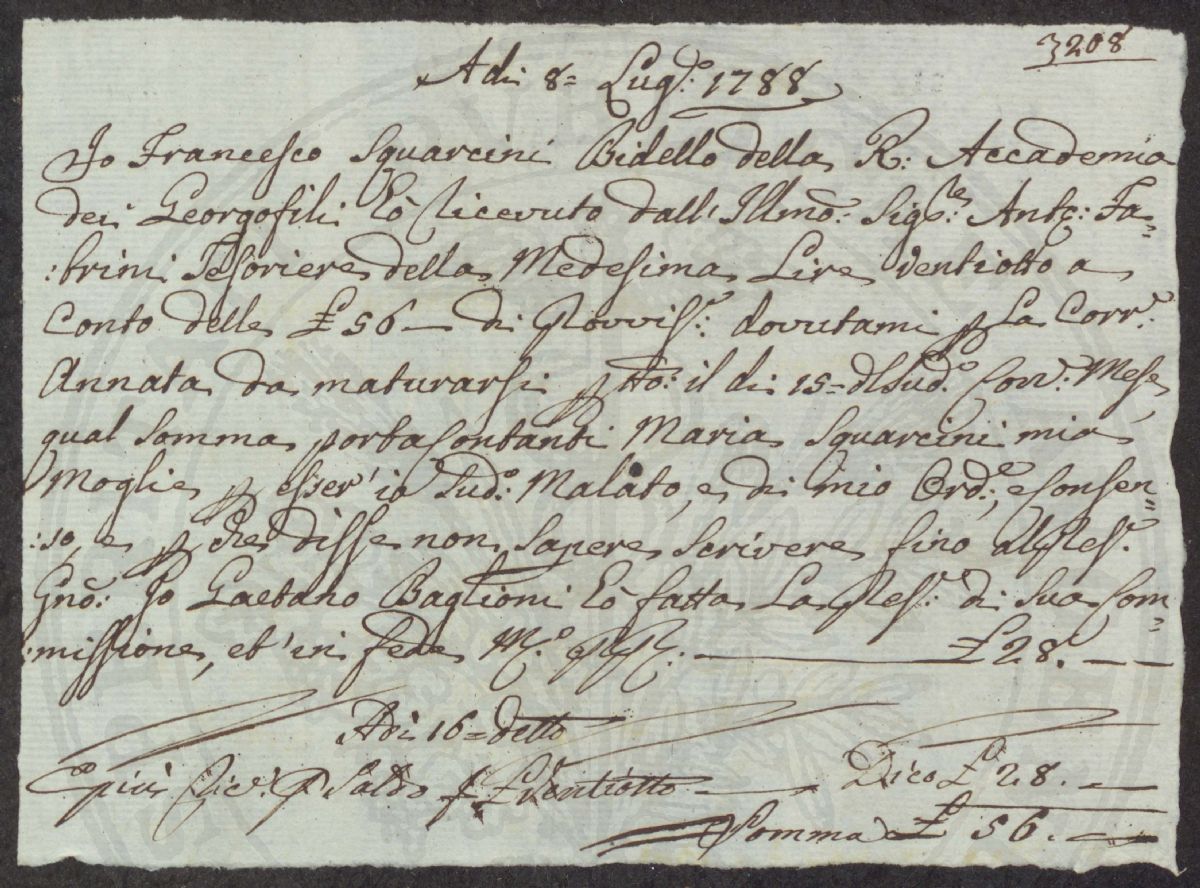 3208
Adi 8= Lug:o 1788
Io Francesco Squarcini Bidello della R: Accademia
dei Georgofili hò ricevuto dall' Illmõ: Sig:re Antº: Fa=
:brini Tesoriere della Medesima Lire Ventiotto a
Conto delle £ 56 — di Provvis:e dovutami p La Corr:e
Annata da maturarsi p tto: il di 15= d Sud:o Corr: Mese,
qual Somma porta Contanti Maria Squarcini mia
Moglie, p esser' io Sud:o Malato, e di mio Ord:e, e Consen=
:so, e p che disse non Sapere Scrivere fino al Pres:e
Gnõ: Io Gaetano Baglioni hò fatta La Pres:e di Sua Com=
:missione, et' in fede M:o PP. — £ 28. — —
Adi 16= detto
E più Ricev: p Saldo £ Ventiotto — Dico £ 28. —
Somma £ 56. —